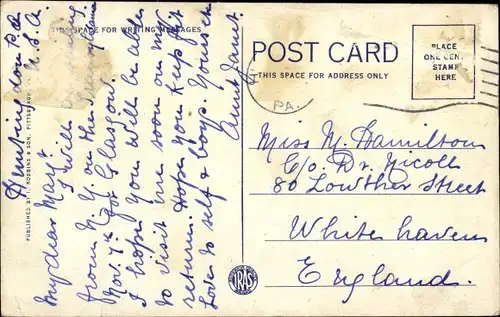 THIS SPACE FOR WRITING MESSAGES
Huntingdon Pa
U.S.A.
My dear May.
I Will be
from N.Y. on the
Nov. 7th for Glasgow.
I hope you will be able
to visit me soon on my
return. Hope you Keep it
Love to self & boys. Yours en
Aunt Janet.
PUBLISHED BY I. ROBBINS & SON, PITTSBURGH, PA.
POST CARD
THIS SPACE FOR ADDRESS ONLY
PLACE
ONE CENT
STAMP
HERE
PA.
Miss M. Hamilton
C/o Dr. Nicoll
80 Lowther Street
White haven
England.
IRAS